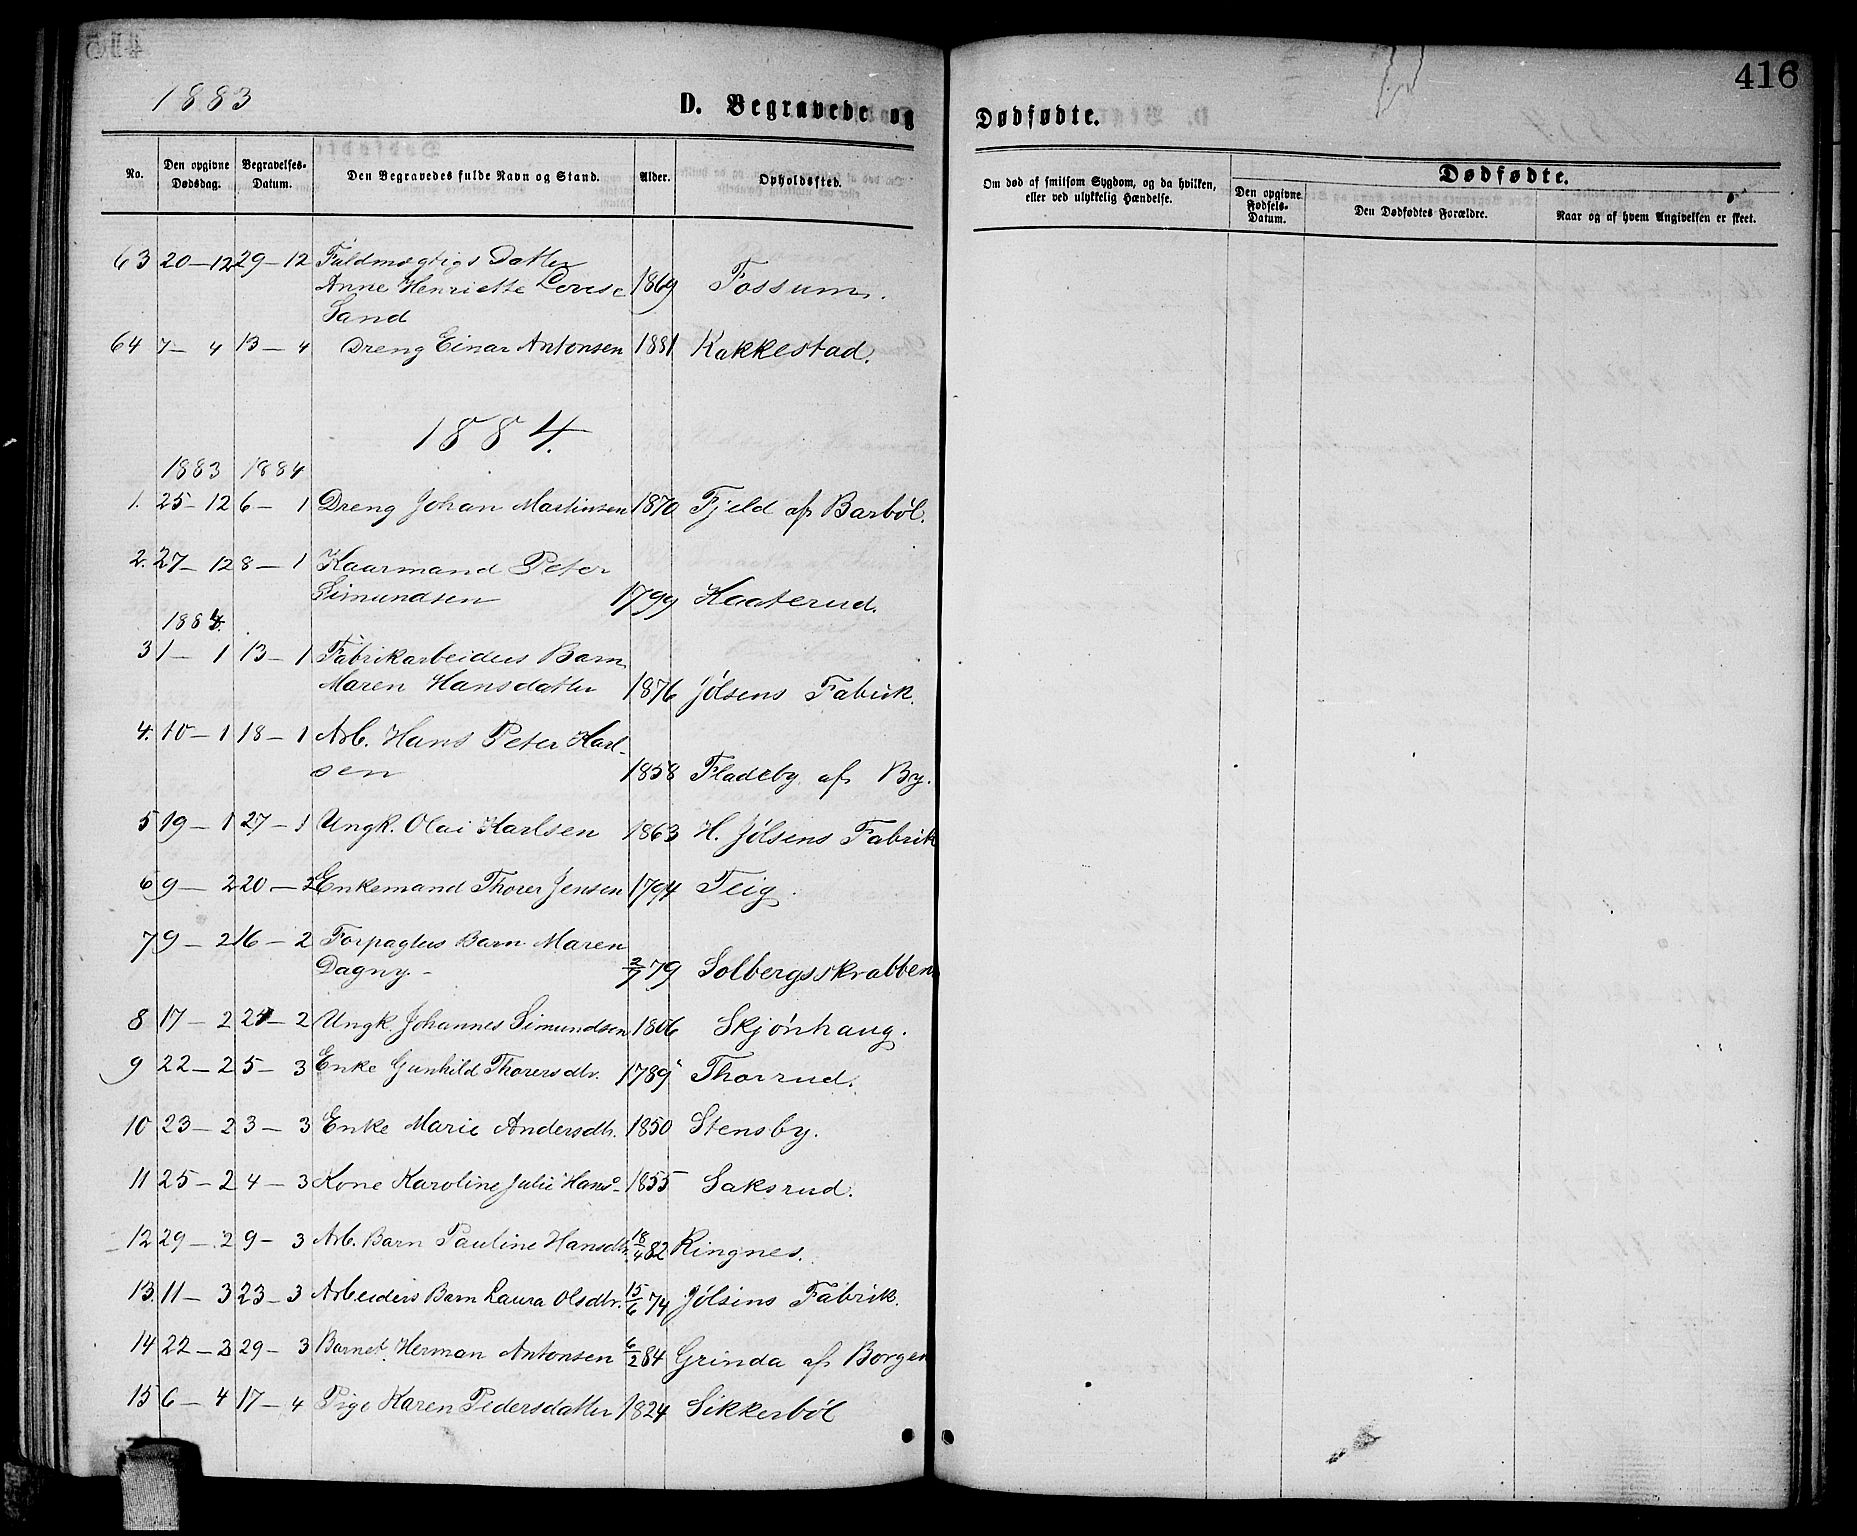 416
1883
D. Begravede og
Dødfødte.
No.
Den opgivne Dødsdag.
Begravelses-Datum.
Den Begravedes fulde Navn og Stand.
Alder.
Opholdssted.
Om død af smitsom Sygdom, og da hvilken, eller ved ulykkelig Hændelse.
Dødfødte.
Den opgivne Fødsels-Datum.
Den Dødfødtes Forældre.
Naar og af hvem Angivelsen er skeet.
63 20–12 29–12 Fuldmægtigs Datter
Anne Henriette Lovise 1869 Fossum.
Sand
64 7–4 13–4 Dreng Einar Antonsen 1881 Kakkestad.
1884.
1883 1884
1. 25–12 6–1 Dreng Johan Martinsen 1870 Fjeld af Barbøl.
2. 27–12 8–1 Kaarmand Peter
Simundsen 1799 Kaaterud.
1884.
3 1–1 13–1 Fabrikarbeiders Barn
Maren Hansdatter 1876 Jølsens Fabrik.
4. 10–1 18–1 Arb. Hans Peter Karl-
sen 1858 Fladeby af By.
5 19–1 27–1 Ungk. Olai Karlsen 1863 H. Jølsens Fabrik
6 9–2 20–2 Enkemand Thorer Jensen 1794 Teig.
7 9–2 16–2 Forpagters Barn Maren
Dagny.– 2/7 79 Solbergsskrabben
8 17–2 24–2 Ungk. Johannes Simundsen 1806 Skjønhaug.
9 22–2 5–3 Enke Gunhild Thorersdtr. 1789 Thorrud.
10 23–2 3–3 Enke Marie Andersdtr. 1850 Stensby.
11 25–2 4–3 Kone Karoline Julie Hans- 1855 Saksrud.
12 29–2 9–3 Arb. Barn Pauline Hansdtr. 18/4 82 Ringnes.
13. 11–3 23–3 Arbeiders Barn Laura Olsdtr. 15/6 74 Jølsens Fabrik.
14 22–3 29–3 Barnet Herman Antonsen 6/2 84 Grinda af Borgen
15 6–4 17–4 Pige Karen Pedersdatter 1824 Sikkerbøl